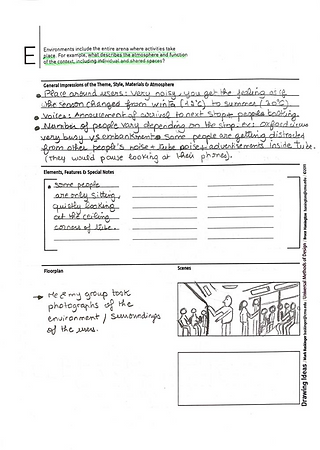 E
Environments include the entire arena where activities take
place. For example, what describes the atmosphere and function
of the context, including individual and shared spaces?
General Impressions of the Theme, Style, Materials & Atmosphere
Place around users: very noisy, you get the feeling as if
the season changed from winter (12°C) to summer (20°C)
Voices: Announcement of arrival to next stop + people talking.
Number of people vary depending on the stop. ex: oxford circus
very busy vs embankment. Some people are getting distracted
from other people's noise + tube noise + advertisements inside tube.
(they would pause looking at their phones).
Elements, Features & Special Notes
some people
are only sitting,
quietly looking
at the ceiling
corners of tube.
Floorplan
Scenes
Me & my group took
photographs of the
environment / surroundings
of the users.
Drawing Ideas
Mark Baskinger
Universal Methods of Design
Bruce Hanington
©2011